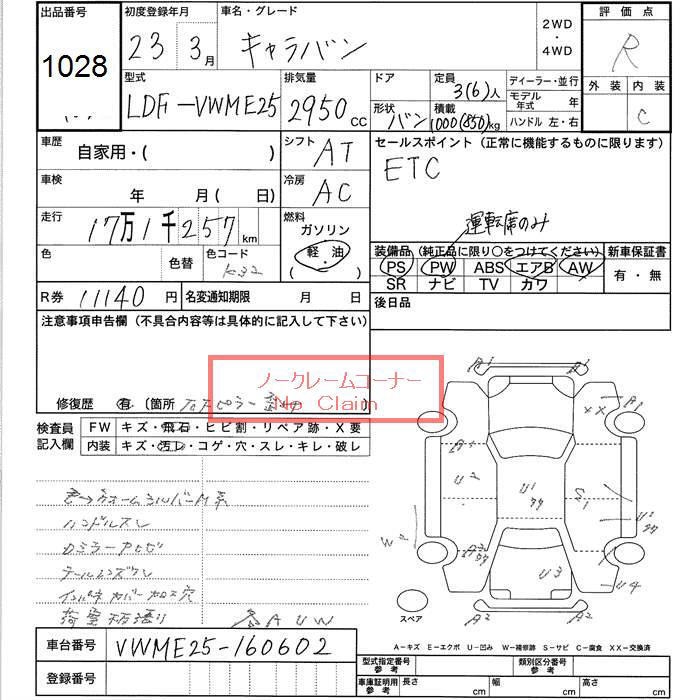 出品番号 1028
初度登録年月 23 3月
車名・グレード キャラバン
2WD・4WD
評価点 R
外装 内装 C
型式 LDF-VWME25
排気量 2950 CC
ドア
形状 バン
定員 3(6)人
積載 1000(850)kg
ディーラー・並行
モデル年式 年
ハンドル 左・右
車歴 自家用・( )
シフト AT
セールスポイント(正常に機能するものに限ります)
ETC
車検 年 月( 日)
冷房 AC
走行 17万1千257km
燃料 ガソリン 軽油 ( )
運転席のみ
色 色替 色コード K32
装備品(純正品に限り○をつけてください) 新車保証書
PS PW ABS エアB AW 有・無
SR ナビ TV カワ
R券 11140円 名変通知期限 月 日
後日品
注意事項申告欄(不具合内容等は具体的に記入して下さい)
ノークレームコーナー
No Claim
修復歴 有 〔箇所
検査員記入欄 FW キズ・飛石・ヒビ割・リペア跡・X要
内装 キズ・汚レ・コゲ・穴・スレ・キレ・破レ
ハンドルスレ
各AUW
A1 A1
XX A1
A1
U2 U1 S1
U1
W
A2
U3 U4
スペア A2 A2
車台番号 VWME25-160602
登録番号
A-キズ E-エクボ U-凹み W-補修跡 S-サビ C-腐食 XX-交換済
型式指定番号 参考 類別区分番号 参考
車庫証明用 参考 長さ cm 幅 cm 高さ cm